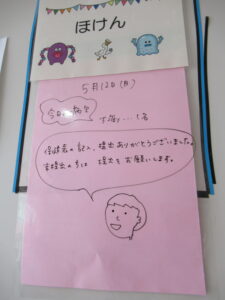 ほけん
5月12日(月)
今日の
下痢…1名
保護者の記入、提出ありがとうございました。
未提出の方は 提出をお願いします。